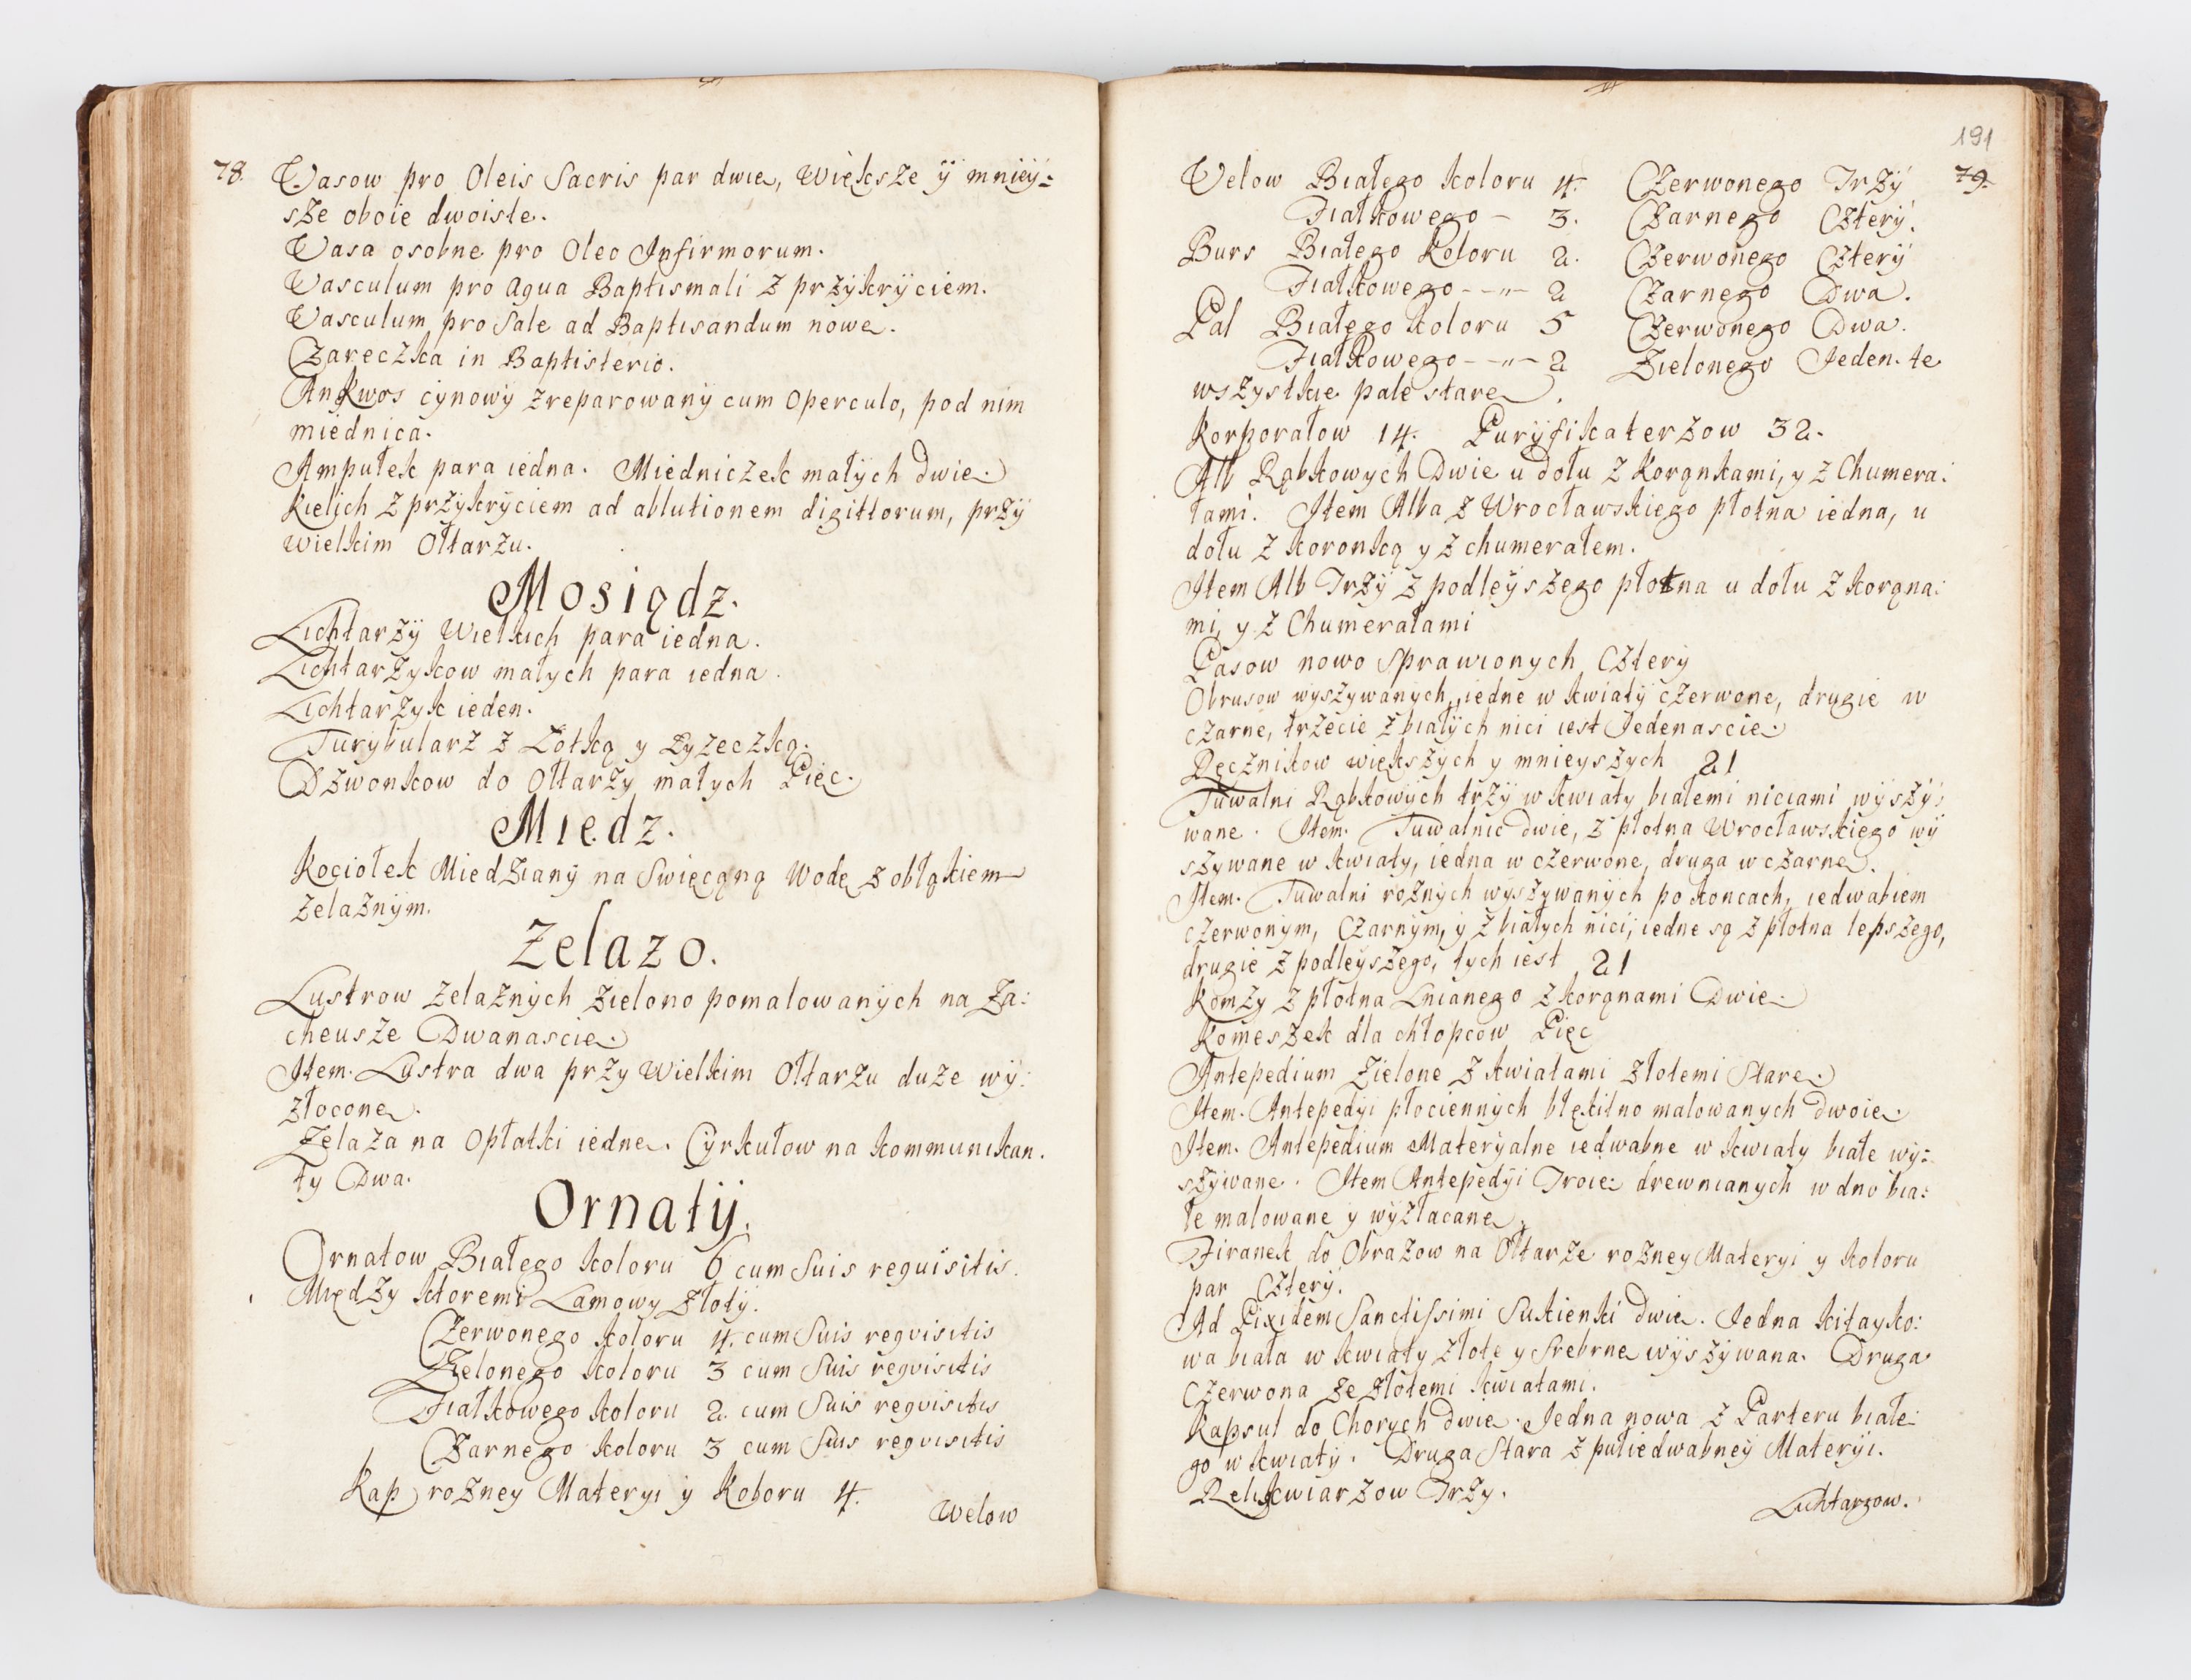 78. Vasow pro Oleis Sacris par dwie, Większe ÿ mnieÿ=
sze oboie dwoiste.
Vasa osobne pro Oleo Infirmorum.
Vasculum pro Aqua Baptismali z przÿkrÿciem.
Vasculum pro Sale ad Baptisandum nowe.
Czareczka in Baptisterio.
Ankwos cÿnowÿ zreparowanÿ cum Operculo, pod nim
miednica.
Ampułek para iedna. Miedniczek małych dwie.
Kielich z przykrÿciem ad ablutionem digittorum, przÿ
wielkim Ołtarzu.
Mosiądz.
Lichtarzÿ Wielkich para iedna.
Lichtarzykow małych para iedna.
Lichtarzyk ieden.
Turybularz z Łotką y Łyzeczką.
Dzwonkow do Ołtarzy małych Pięc.
Miedz.
Kociołek Miedzianÿ na Swięcąną Wodę z obłąkiem
zelaznÿm.
Zelazo.
Lustrow zelaznÿch zielono pomalowanÿch na Za:
cheusze Dwanascie.
Item. Lustra dwa przy Wielkim Ołtarzu duze wÿ:
złocone.
Zelaza na Opłatki iedne. Cÿrkułow na kommunikan.
ty Dwa.
Ornatÿ.
Ornatow Białego koloru 6 cum Suis requisitis.
Między ktoremi Lamowy złotÿ.
Czerwonego koloru 4. cum Suis requisitis
Zielonego koloru 3 cum Suis requisitis
Fiałkowego koloru 2. cum Suis requisitis
Czarnego koloru 3 cum Suis requisitis
Kap rozney Materyi ÿ Koloru 4.
Welow
191
Welow Białego koloru 4. Czerwonego Trzÿ 79.
Fiałkowego - 3. Czarnego Czterÿ.
Burs Białego Koloru 2. Czerwonego Czterÿ
Fiałkowego - - " - 2 Czarnego Dwa.
Pal Białego koloru 5 Czerwonego Dwa.
Fiałkowego - - " - 2 Zielonego Jeden. te
wszystkie pale stare.
Korporałow 14. Purÿfikaterzow 32.
Alb Rąbkowych Dwie u dołu z Korąnkami, y z Chumera:
łami. Item Alba z Wrocławskiego płotna iedna, u
dołu z koronką y z chumerałem.
Item Alb Trzÿ z podleÿszego płotna u dołu z korąna:
mi, y z Chumerałami
Pasow nowo Sprawionych Czterÿ
Obrusow wyszywanÿch, iedne w kwiatÿ czerwone, drugie w
czarne, trzecie z białÿch nici iest Jedenascie.
Ręcznikow większÿch y mnieyszych 21
Tuwalni Rąbkowÿch trzÿ w kwiaty białemi niciami wÿszÿ:
wane. Item. Tuwalnie dwie, z płotna Wrocławskiego wÿ
szywane w kwiaty, iedna w czerwone, druga w czarne.
Item. Tuwalni roznÿch wyszywanÿch po koncach, iedwabiem
czerwonÿm, Czarnÿm, ÿ z białych nici, iedne są z płotna lepszego,
drugie z podleÿszego, tych iest 21
Komzy z płotna Lnianego z korąnami Dwie.
Komeszek dla chłopcow Pięc
Antepedium Zielone z kwiatami złotemi Stare.
Item. Antepedÿi płociennÿch błękitno malowanych dwoie.
Item. Antepedium Materÿalne iedwabne w kwiaty białe wÿ=
szÿwane. Item Antepedÿi Troie: drewnianÿch w dno bia:
łe malowane y wÿzłacane.
Firanek do Obrazow na Ołtarze rozneÿ Materyi y koloru
par Czterÿ.
Ad Pixidem Sanctissimi Sukienki dwie. Jedna kitayko:
wa biała w kwiaty złote y Srebrne wÿszÿwana. Druga
Czerwona ze złotemi kwiatami.
Kapsul do Chorych dwie. Jedna nowa z Parteru białe:
go w kwiatÿ. Druga Stara z pułiedwabneÿ Materÿi.
Relikwiarzow Trzy.
Lichtarzow.